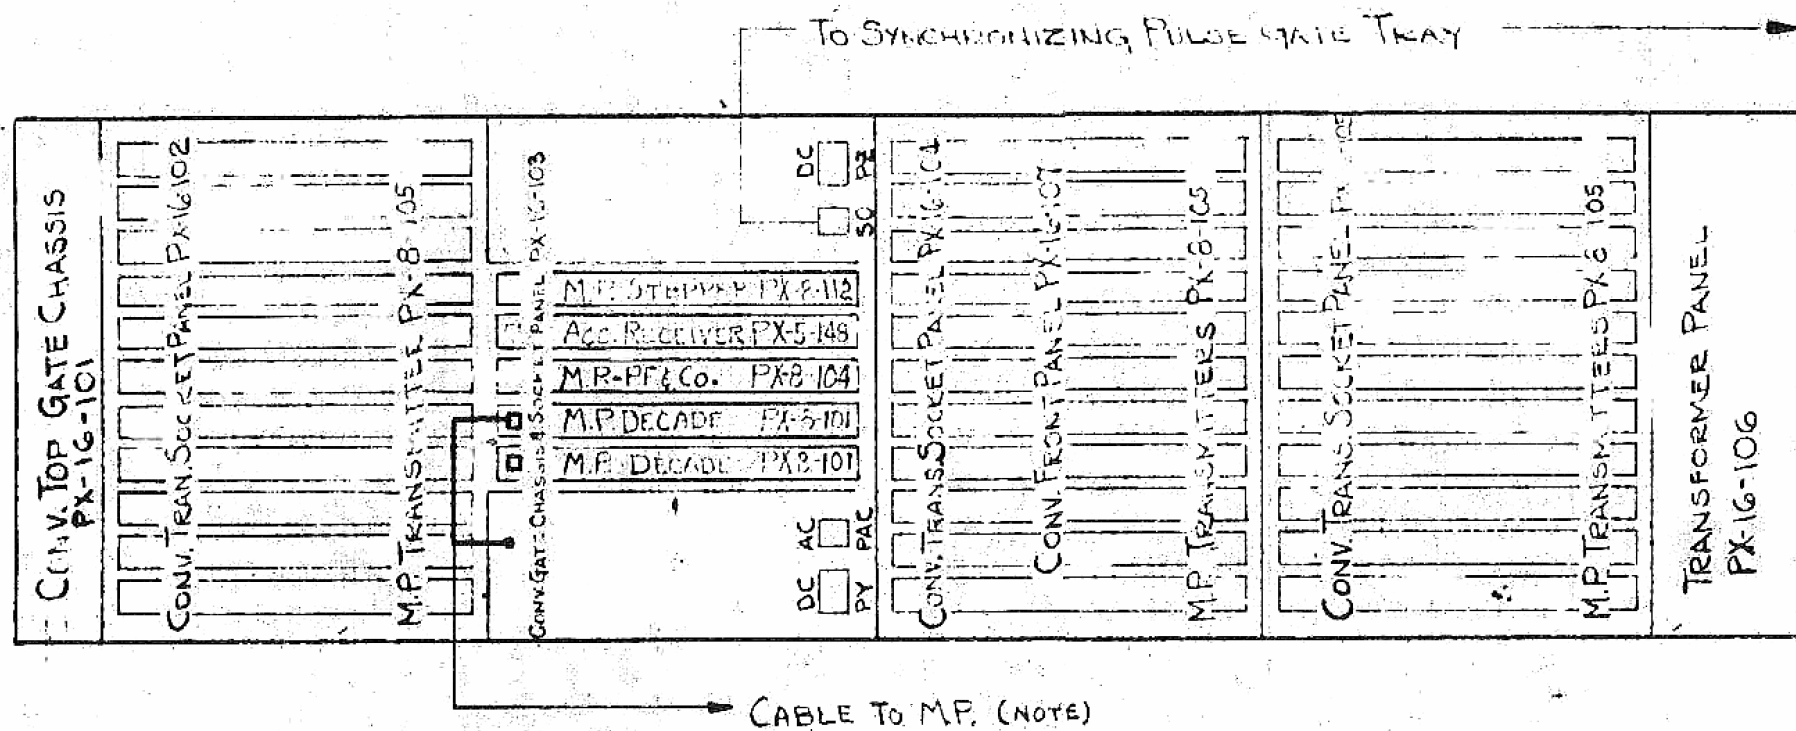 TO SYNCHRONIZING PULSE GATE TRAY
CONV. TOP GATE CHASSIS
PX-16-101
CONV. TRAN. SOCKET PANEL PX-16102
M.P. TRANSMITTER PX-8 105
CONV. GATE CHASSIS & SOCKET PANEL PX-16-103
DC
PZ
SC
M.P. STEPPER PX-8-112
ACC. RECEIVER PX-5-148
M.P-PF & CO. PX-8-104
M.P. DECADE PX-8-101
M.P. DECADE PX8-101
AC
PAC
DC
PY
CONV. TRANS. SOCKET PANEL PX-16-104
CONV. FRONT PANEL PX-16-107
M.P. TRANSMITTERS PX-8-105
CONV. TRANS. SOCKET PANEL
M.P. TRANSMITTERS PX 8 105
TRANSFORMER PANEL
PX-16-106
CABLE TO M.P. (NOTE)